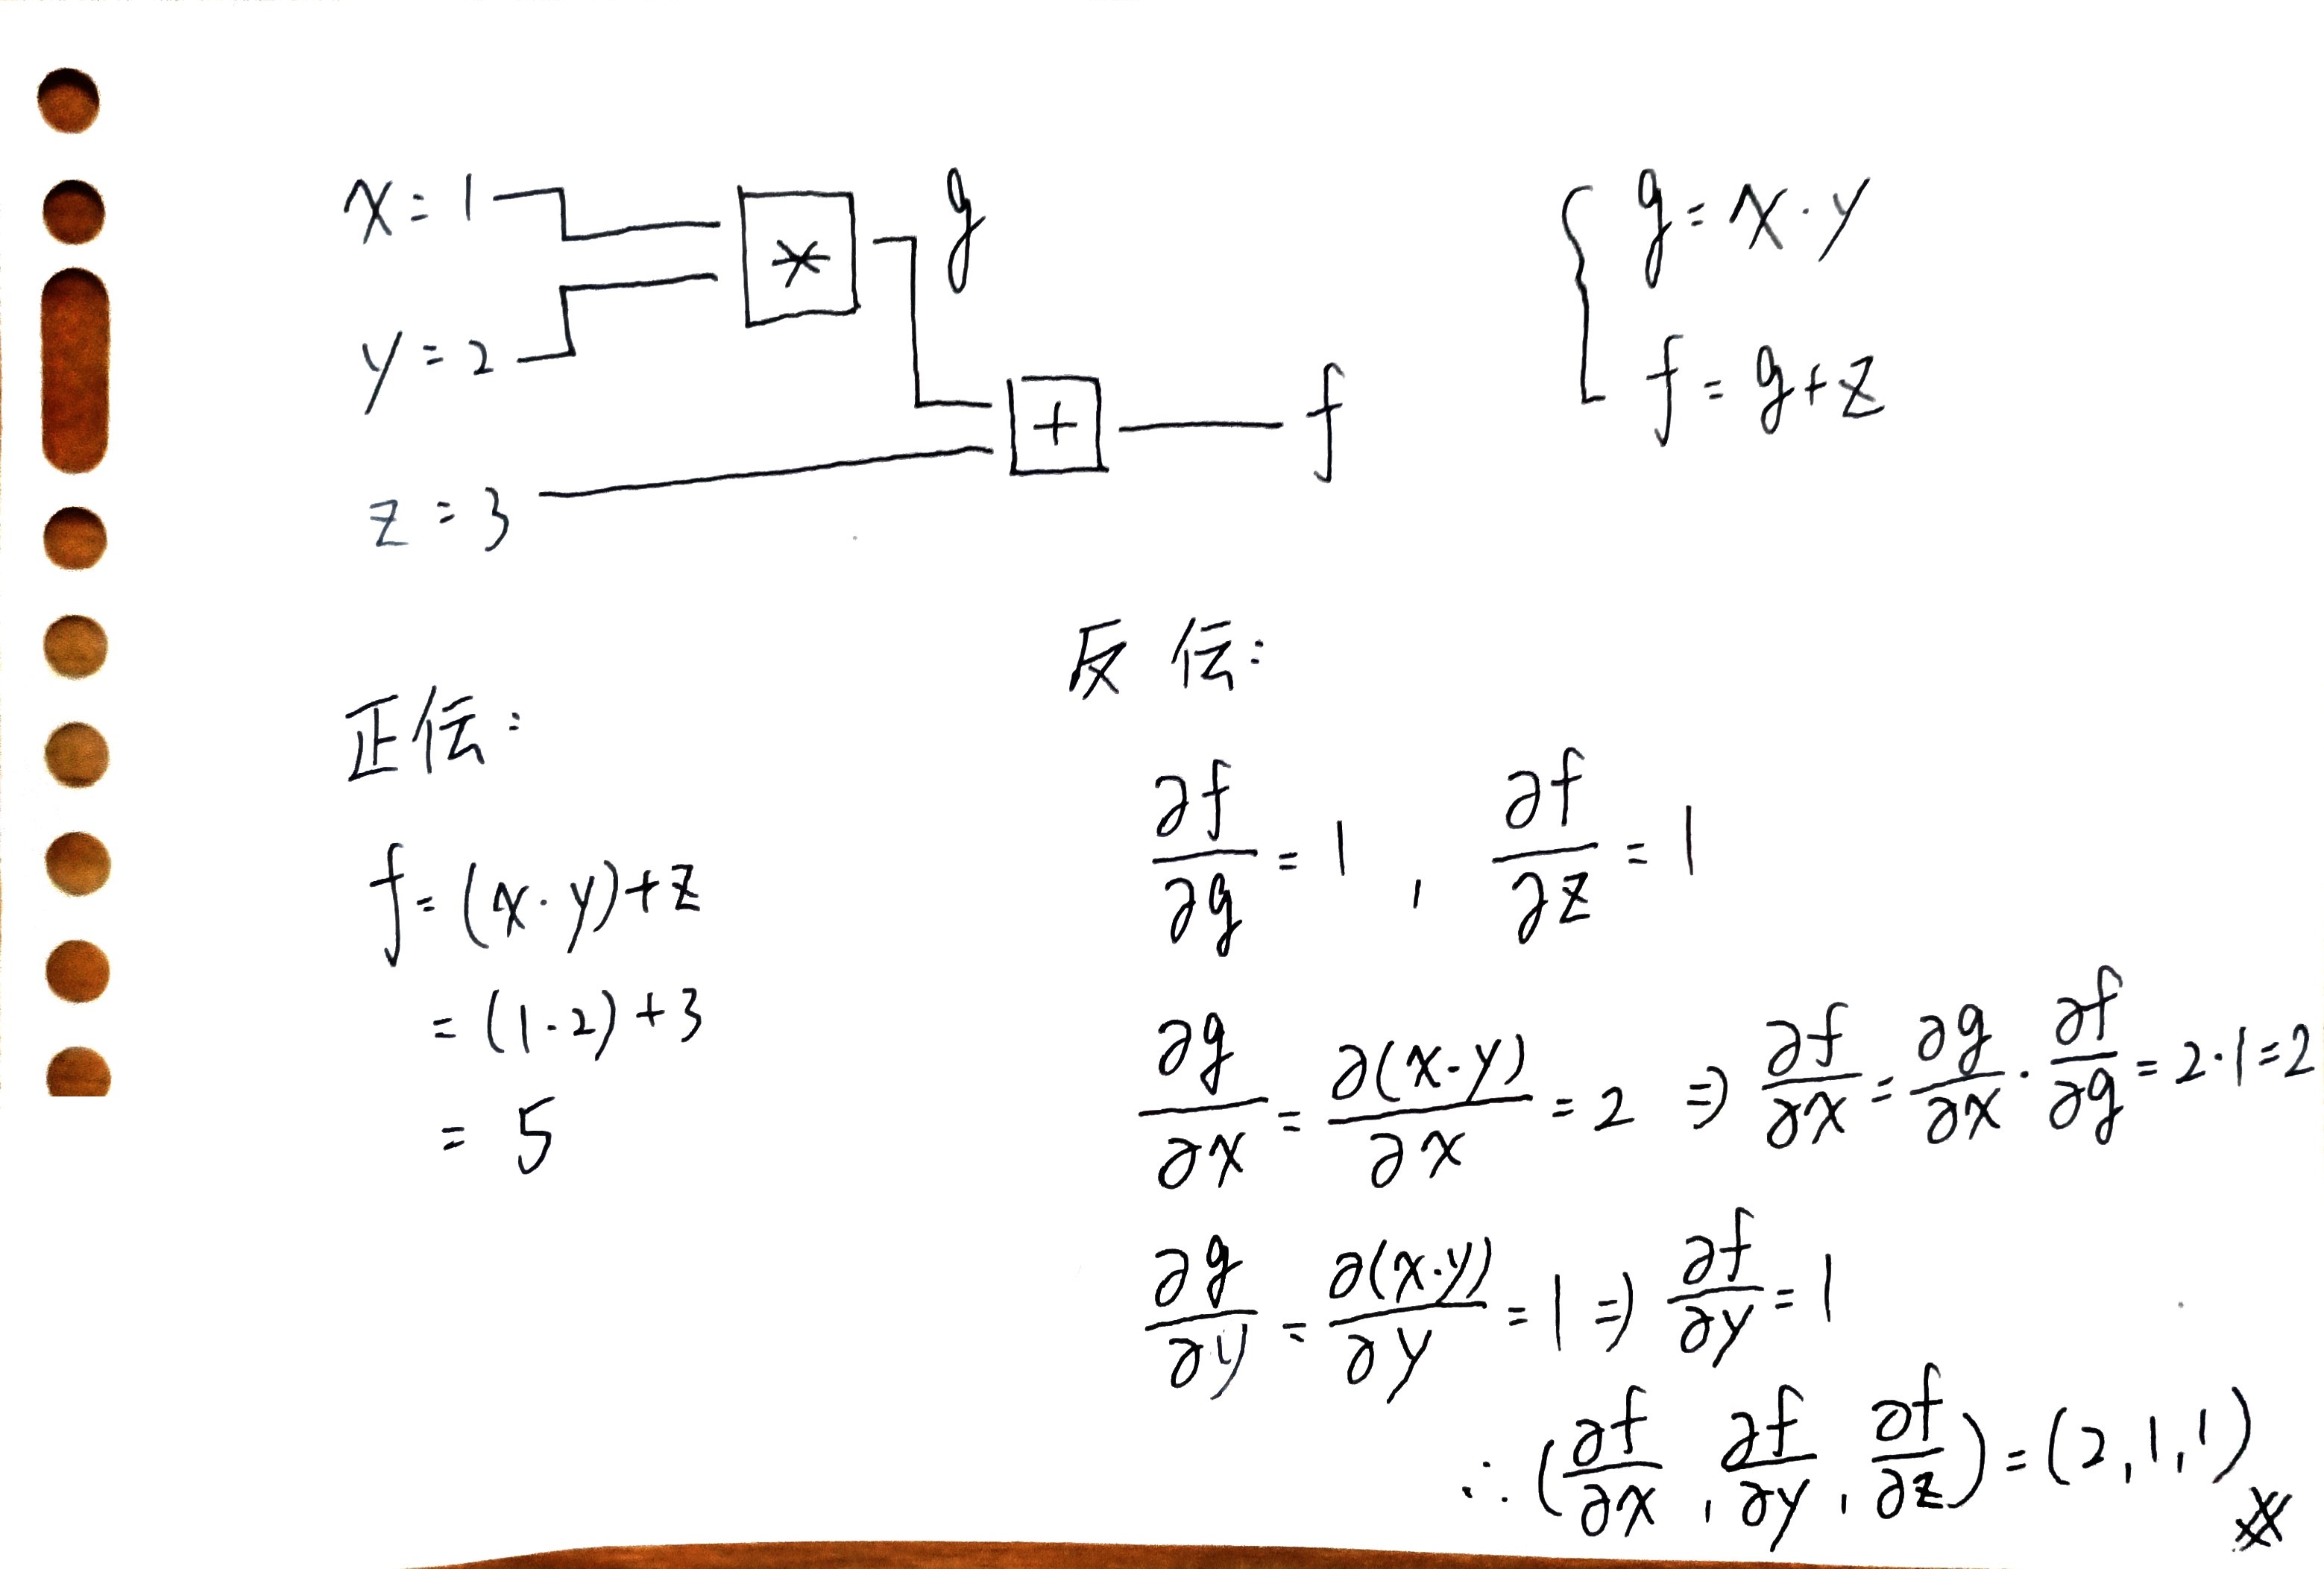 x=1
*
g
y=2
+
f
z=3
{ g=x·y
f=g+z
正伝:
f=(x·y)+z
=(1·2)+3
=5
反伝:
∂f/∂g=1, ∂f/∂z=1
∂g/∂x=∂(x·y)/∂x=2 ⇒ ∂f/∂x=∂g/∂x·∂f/∂g=2·1=2
∂g/∂y=∂(x·y)/∂y=1 ⇒ ∂f/∂y=1
∴(∂f/∂x, ∂f/∂y, ∂f/∂z)=(2,1,1)